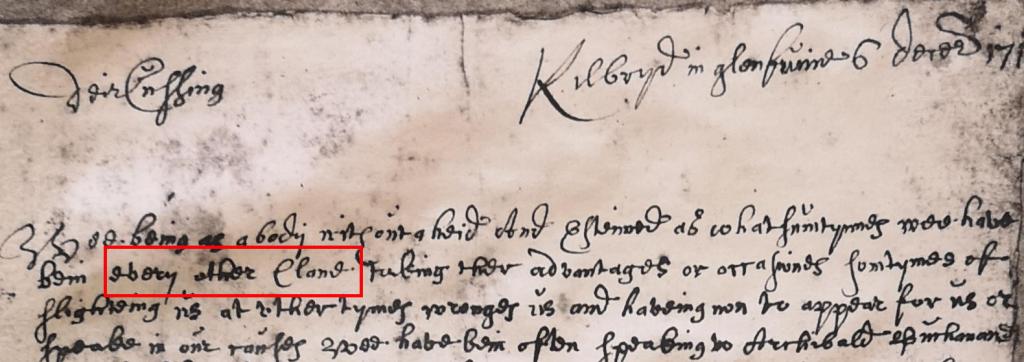 Deir Cussing
Kilbryd in glenfruine 6 decer 171
Wee being as a body without a heid And Esteimed as what sumtymes wee have
bein every other Clane Taking ther advantages or occasiones somtymes of
slighteing us at uther tymes wronges us and haveing non to appear for us or
speake in our causes Wee have bein often speaking to Archibald Buchanane